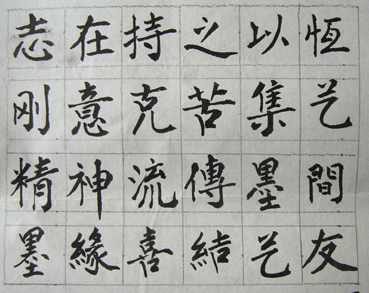 志在持之以恆
刚意克苦集艺
精神流傳墨間
墨緣喜結艺友